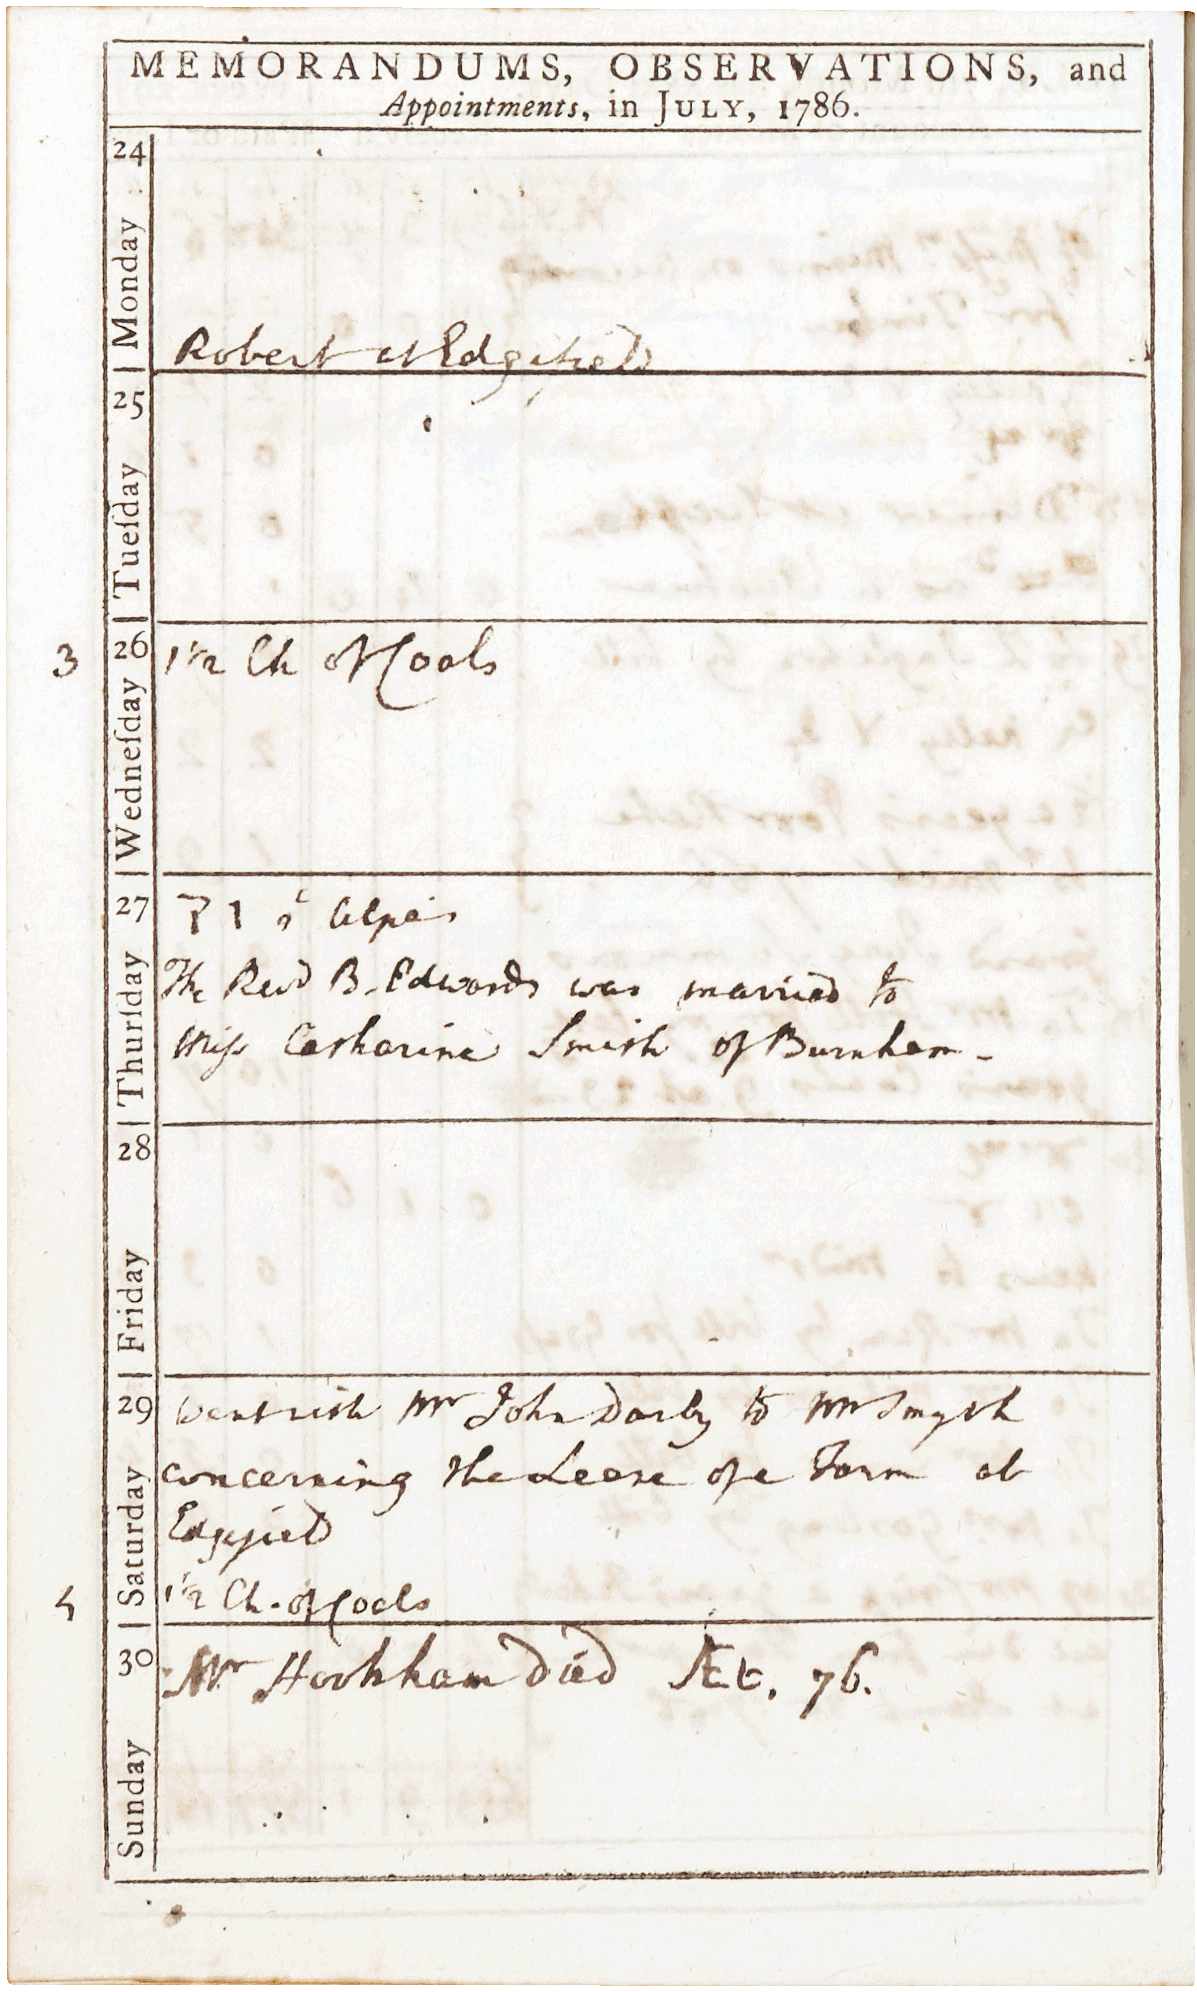 MEMORANDUMS, OBSERVATIONS, and
Appointments, in JULY, 1786.
24 Monday
Robert at Edgefield
25 Tueſday
3 26 Wedneſday 1 1/2 Ch of Coals
27 Thurſday
The Revd B. Edwards was married to
Miss Catharine Smith of Burnham -
28 Friday
29 Saturday Went with Mr John Darby to Mr Smyth
concerning the Lease of a Farm at
1 1/2 Ch. of Coals
30 Sunday Mr Hookham died Æt. 76.